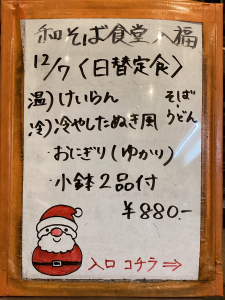 和そば食堂 八福
12/7 〈日替定食〉
温) けいらん そば・うどん
冷) 冷やしたぬき風
・おにぎり(ゆかり)
・小鉢2品付
¥880.-
入口 コチラ⇒